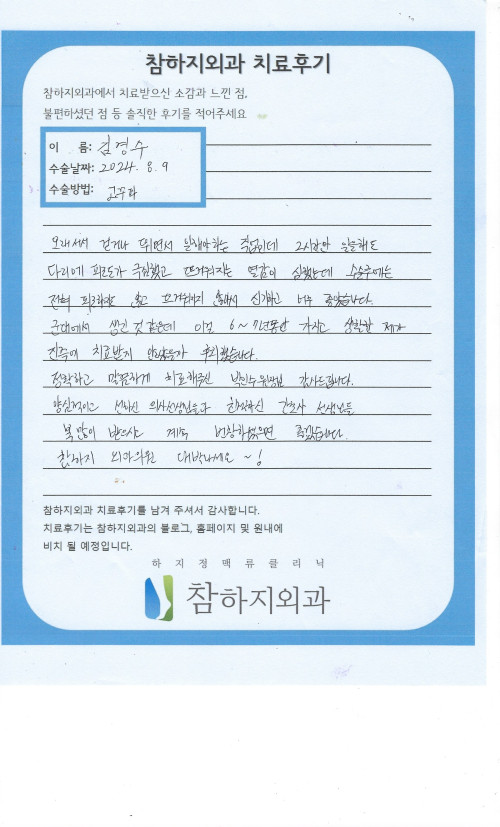 참하지외과 치료후기
참하지외과에서 치료받으신 소감과 느낀 점,
불편하셨던 점 등 솔직한 후기를 적어주세요
이 름: 김경수
수술날짜: 2024. 8. 9
수술방법: 고주파
오래서서 걷거나 뛰면서 일해야하는 직업인데 2시간만 일을해도
다리에 피로도가 극심했고 뜨거워지는 열감이 심했는데 수술후에는
전혀 피로하지 않고 뜨거워지지 않아서 신기하고 너무 좋았습니다.
군대에서 생긴 것 같은데 이걸 6~7년동안 가지고 생활한 제가
진즉에 치료받지 않았을까 후회했습니다.
정확하고 깔끔하게 치료해주신 박인수 원장님 감사드립니다.
양심적이고 선하신 의사선생님들과 친절하신 간호사 선생님들
복 많이 받으시고 계속 번창하셨으면 좋겠습니다.
참하지 외과의원 대박나세요 ~!
참하지외과 치료후기를 남겨 주셔서 감사합니다.
치료후기는 참하지외과의 블로그, 홈페이지 및 원내에
비치 될 예정입니다.
하지정맥류클리닉
참하지외과